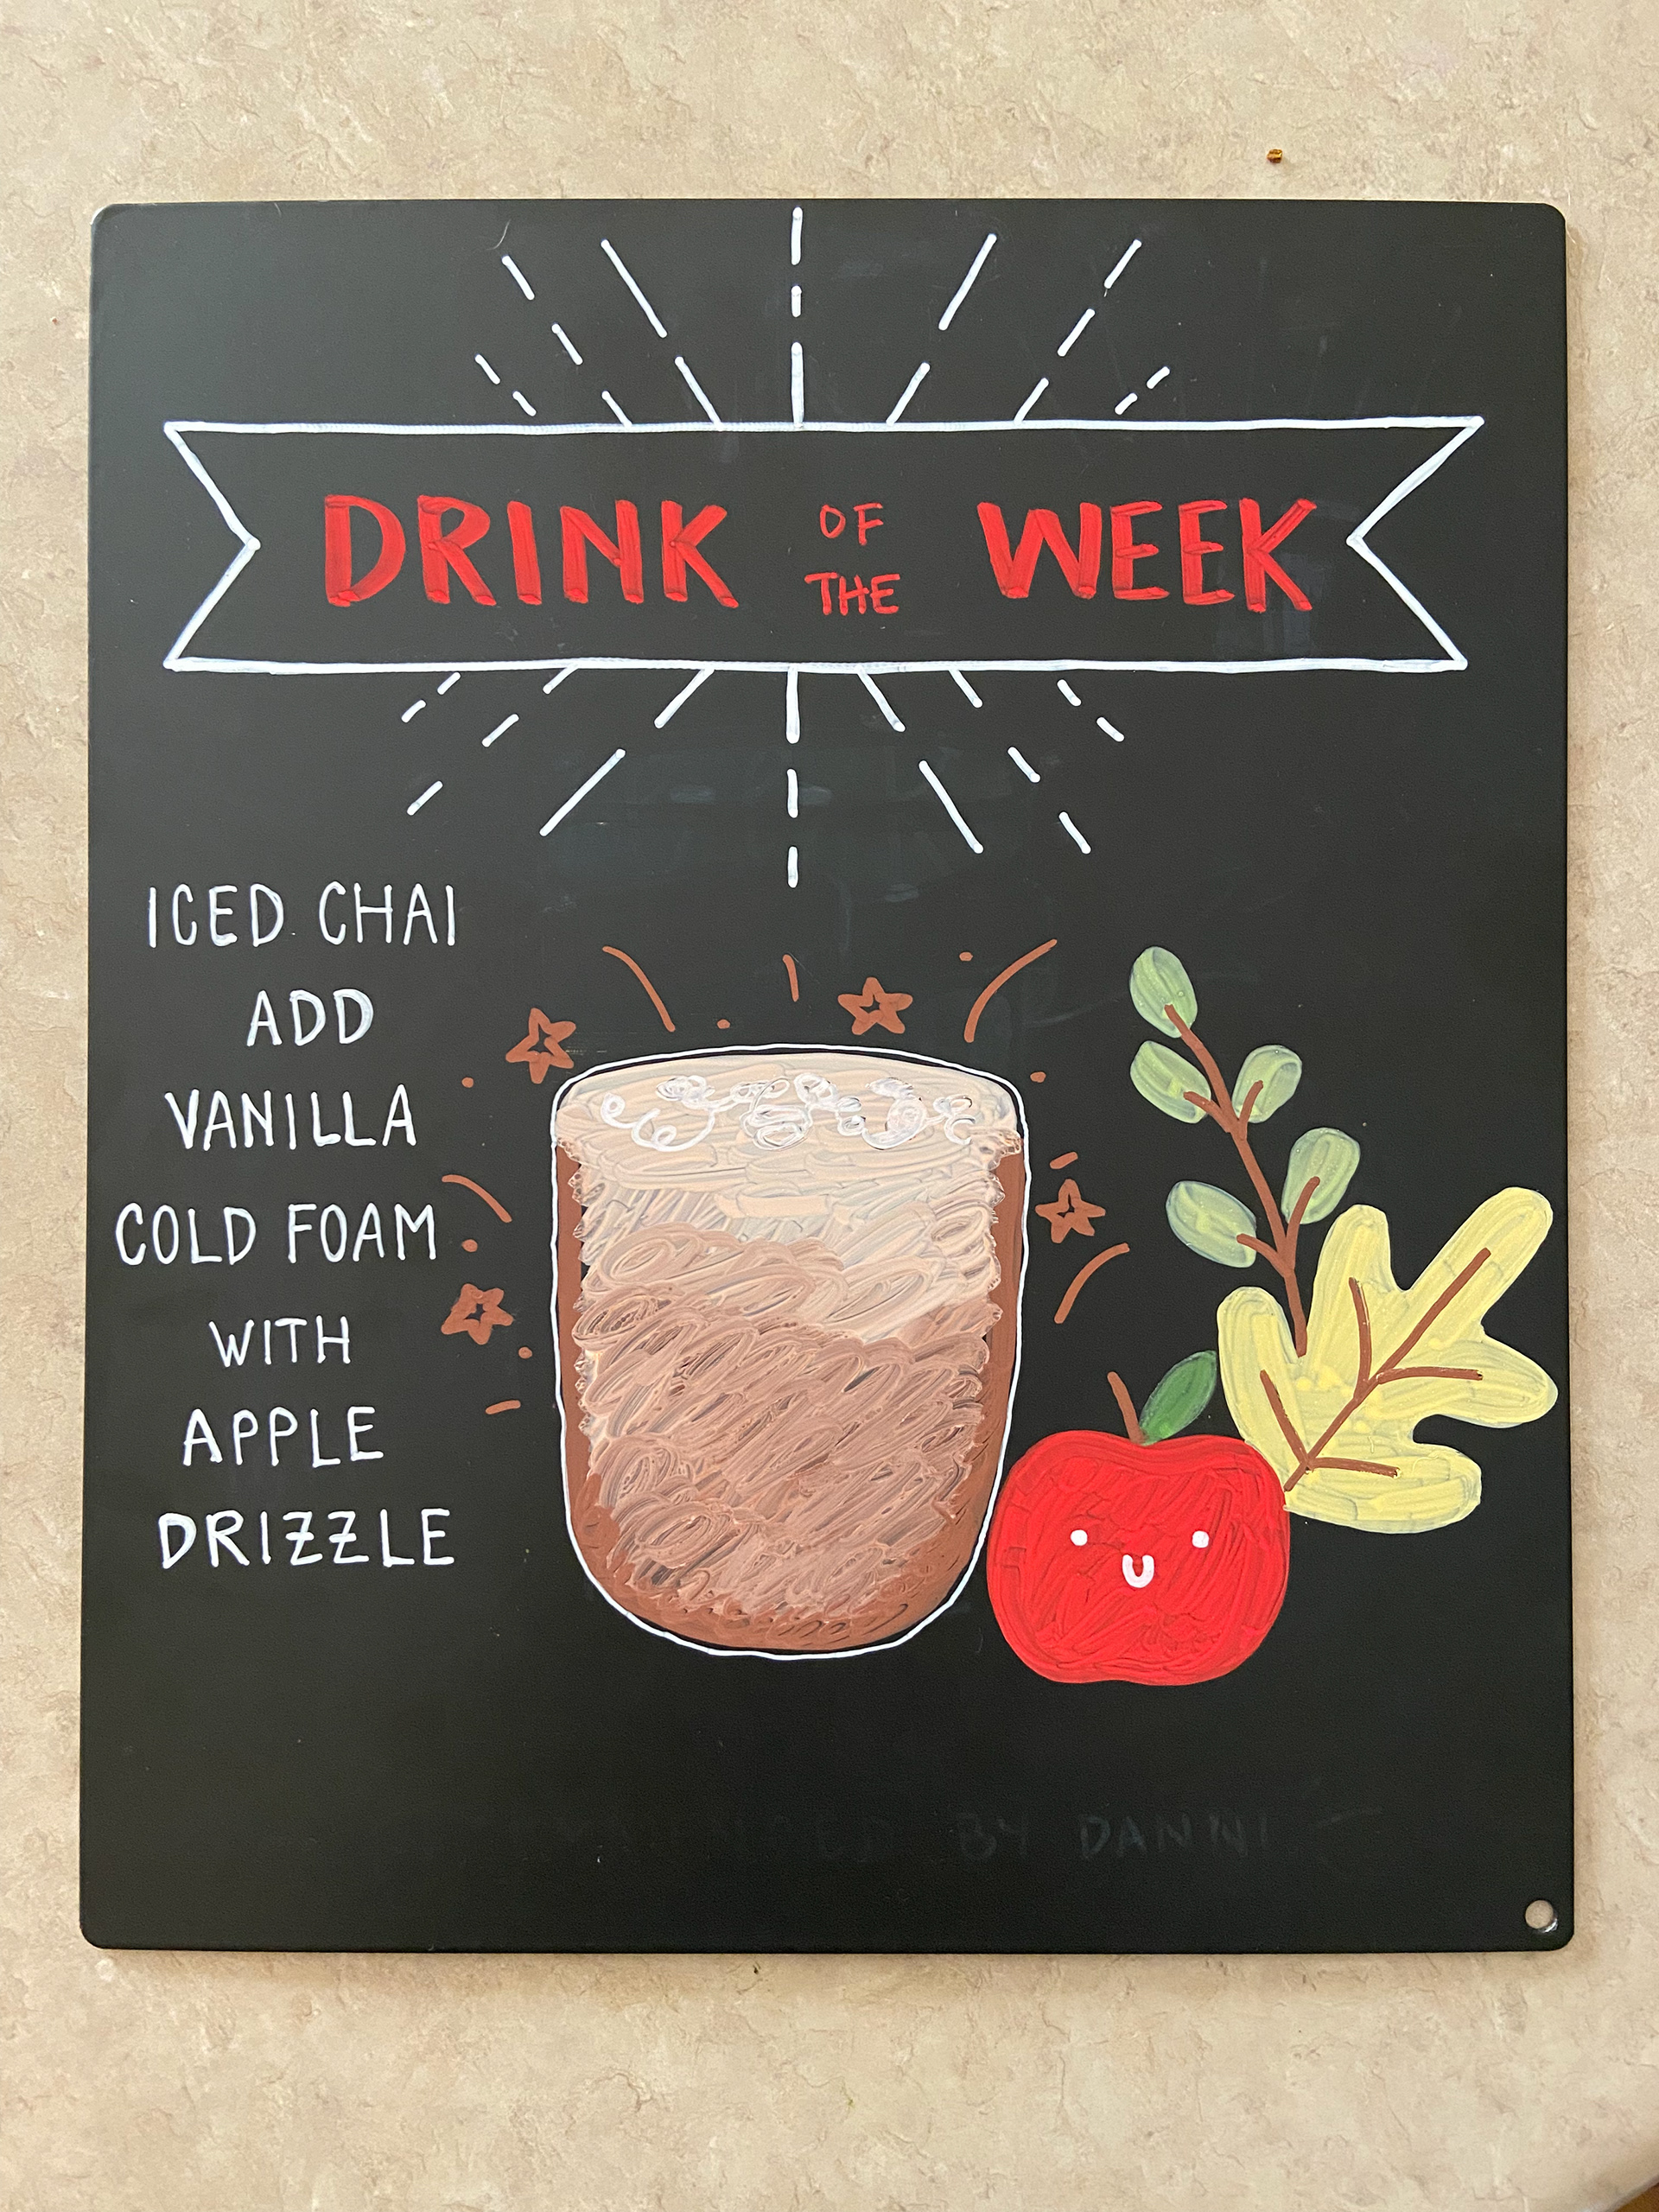 DRINK OF THE WEEK
ICED CHAI
ADD
VANILLA
COLD FOAM
WITH
APPLE
DRIZZLE
BY DANNI